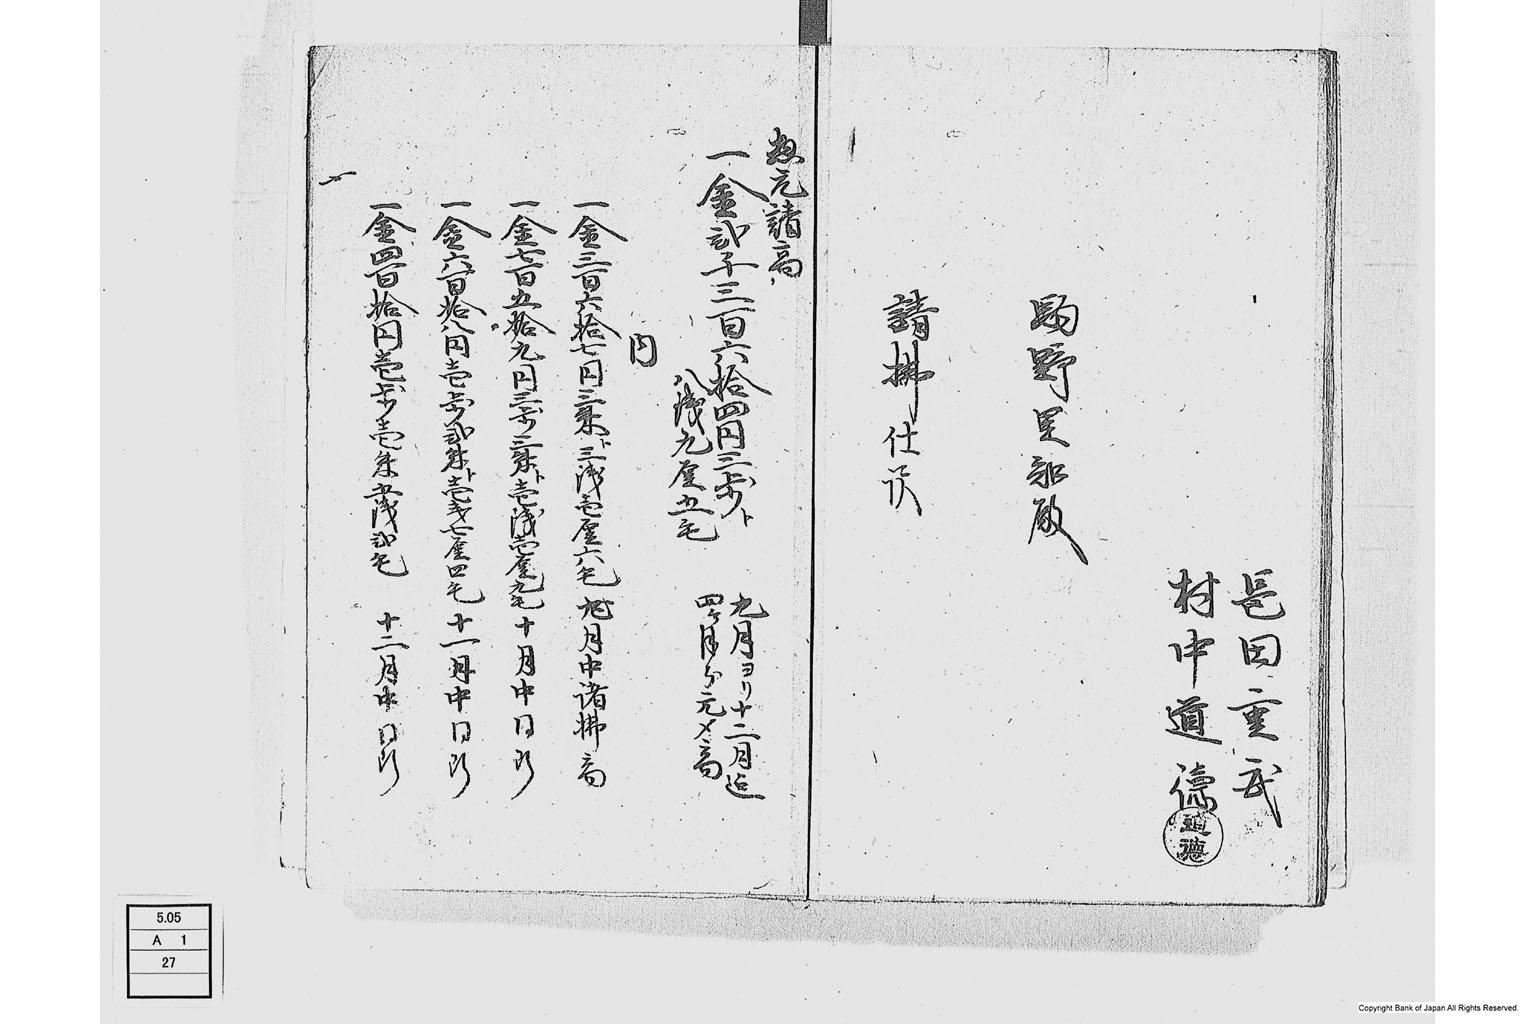 邑田重武
村中道德
道德
駒野里和殿
請拂仕訳
惣元請高
一金弐千三百六拾四円三歩ト
八浅九厘五毛
九月ヨリ十二月迄
四ヶ月分元〆高
内
一金三百六拾七円三朱ト三浅壱厘六毛 九月中諸拂高
一金七百五拾九円三歩三朱ト壱浅壱厘九毛 十月中同断
一金六百拾八円壱歩弐朱ト壱浅七厘四毛 十一月中同断
一金四百拾円壱歩壱朱五浅弐毛 十二月中同断
5.05
A 1
27
Copyright Bank of Japan All Rights Reserved.